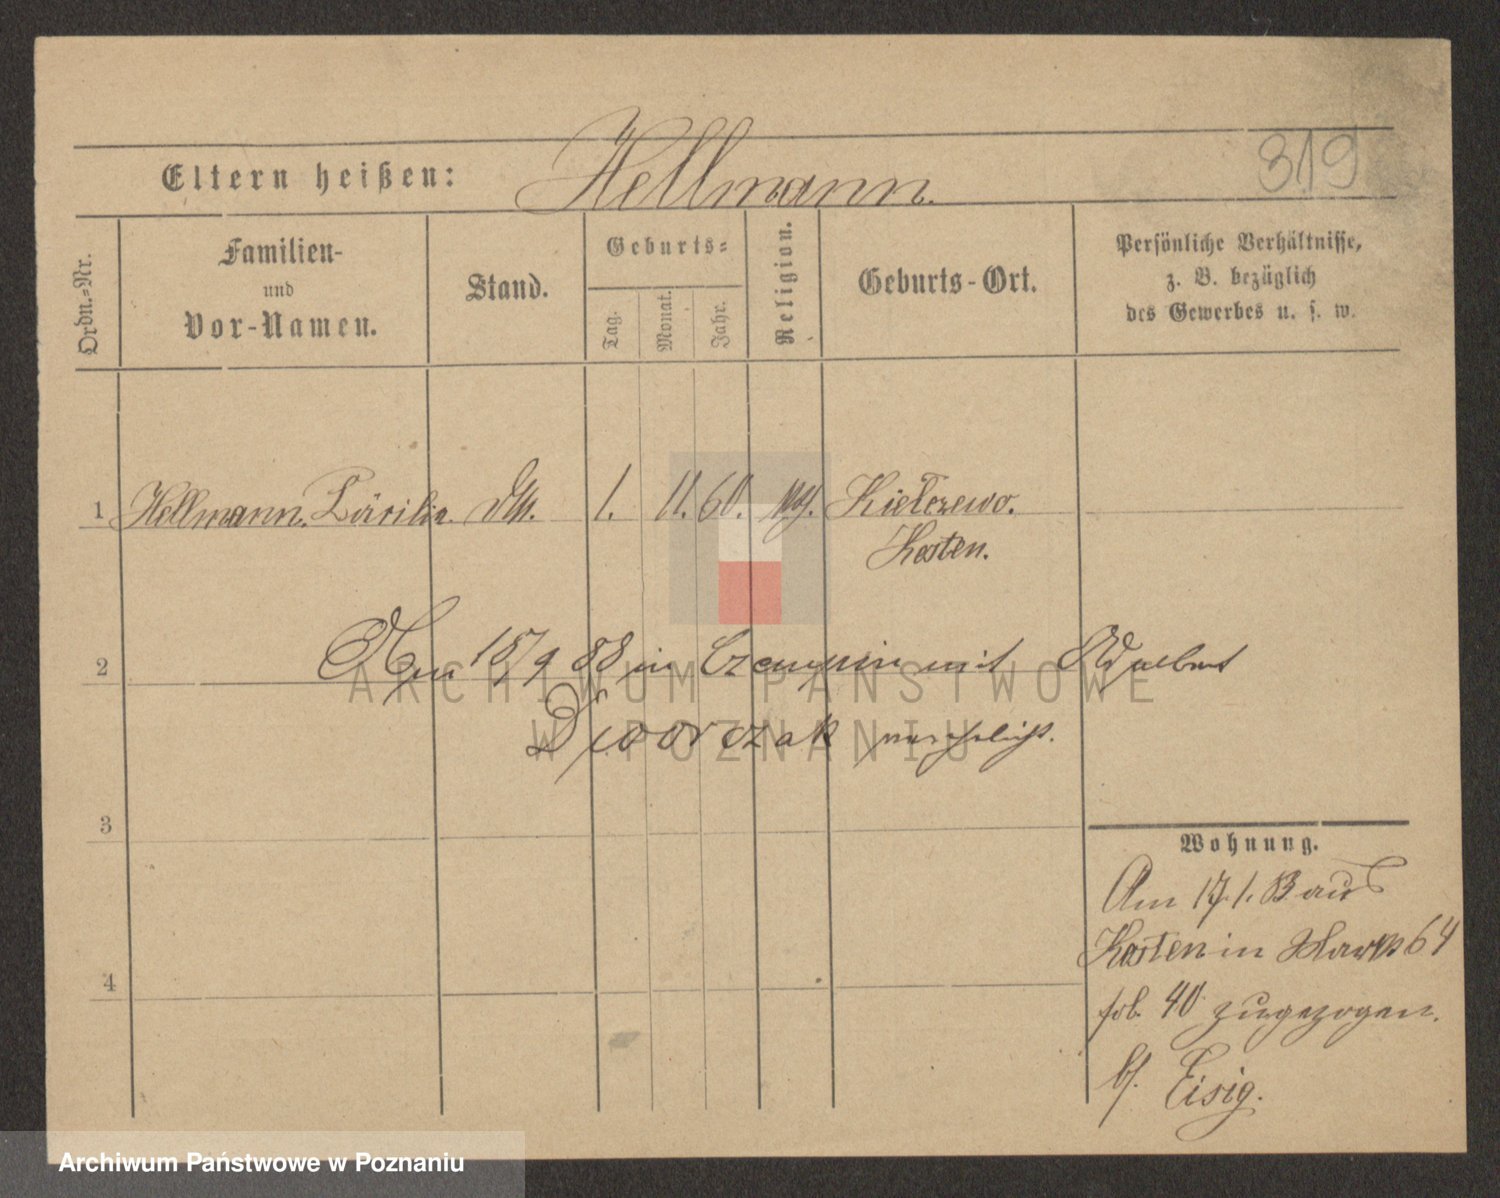 319
Eltern heißen: Hellmann.
Ordn.-Nr.
Familien-
und
Vor-Namen.
Stand.
Geburts-
Tag.
Monat.
Jahr.
Religion.
Geburts-Ort.
Persönliche Verhältnisse,
z. B. bezüglich
des Gewerbes u. s. w.
1 Hellmann. Cäcilia. 1. 11. 60. Kiełczewo.
Kosten.
2 Am 15/9 88 in Czempin mit Adalbert
Dworczak verehelicht.
3
4
Wohnung.
Am 17. 1. 83 aus
Kosten in 64
40 zugezogen.
bf. Eisig.
ARCHIWUM PAŃSTWOWE
W POZNANIU
Archiwum Państwowe w Poznaniu